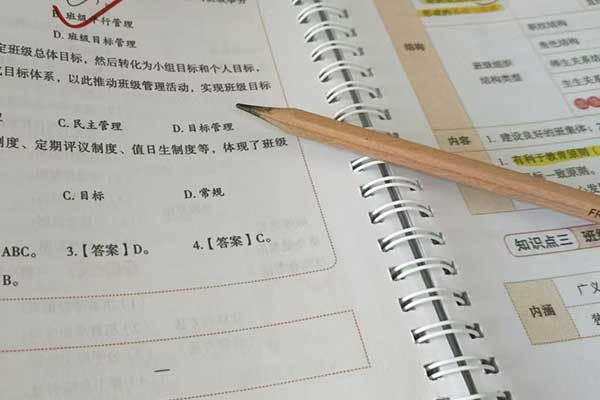 B. 班级平行管理
D. 班级目标管理
定班级总体目标，然后转化为小组目标和个人目标，
目标体系，以此推动班级管理活动，实现班级目标
C. 民主管理 D. 目标管理
制度、定期评议制度、值日生制度等，体现了班级
C. 目标 D. 常规
ABC。 3.【答案】D。 4.【答案】C。
B。
结构
班级组织
结构类型
职权结构
角色结构
师生关系结
生生关系结
内容
1. 建设良好的班集体，
1. 有利于教育原则（
目标一致原则。
知识点三 班
内涵
广义